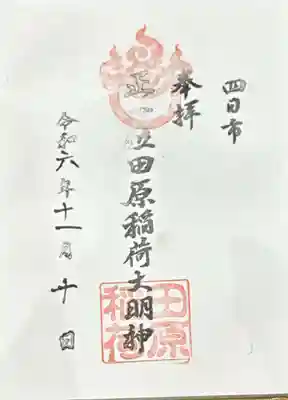 四日市
奉拝
正一位田原稲荷大明神
令和六年十一月十日
田原
稲荷